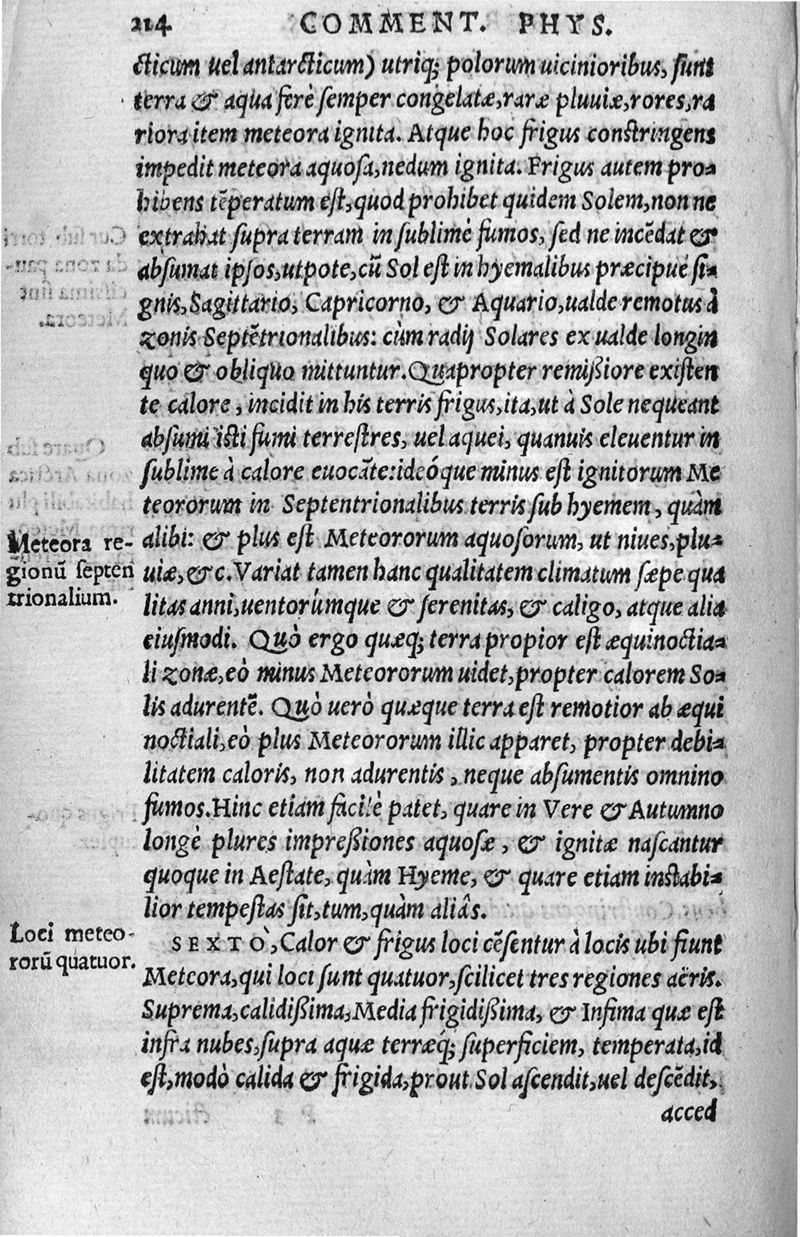 214 COMMENT. PHYS.
cticum uel antarcticum) utriq; polorum uicinioribus, sunt
terra & aqua ferè semper congelatæ, raræ pluuiæ, rores, ra
riora item meteora ignita. Atque hoc frigus constringens
impedit meteora aquosa, nedum ignita. Frigus autem pro-
hibens tẽperatum est, quod prohibet quidem Solem, non ne
extrahat supra terram in sublime fumos, sed ne incẽdat &
absumat ipsos, utpote, cũ Sol est in hyemalibus præcipuè si-
gnis, Sagittario, Capricorno, & Aquario, ualde remotus à
zonis Septẽtrionalibus: cùm radij Solares ex ualde longin
quo & obliquo mittuntur. Quapropter remißiore existen
te calore, incidit in his terris frigus, ita, ut à Sole nequeant
absumi isti fumi terrestres, uel aquei, quanuis eleuentur in
sublime à calore euocãte: ideóque minus est ignitorum Me
teororum in Septentrionalibus terris sub hyemem, quàm
alibi: & plus est Meteororum aquosorum, ut niues, plu-
uiæ, & c. Variat tamen hanc qualitatem climatum sæpe qua
litas anni, uentorúmque & serenitas, & caligo, atque alia
eiusmodi. Quò ergo quæq; terra propior est æquinoctia-
li zonæ, eò minus Meteororum uidet, propter calorem So-
lis adurentẽ. Quò uerò quæque terra est remotior ab æqui
noctiali, eò plus Meteororum illic apparet, propter debi-
litatem caloris, non adurentis, neque absumentis omnino
fumos. Hinc etiam facilè patet, quare in Vere & Autumno
longè plures impreßiones aquosæ, & ignitæ nascantur
quoque in Aestate, quàm Hyeme, & quare etiam instabi-
lior tempestas sit, tum, quàm aliâs.
SEXTÒ, Calor & frigus loci cẽsentur à locis ubi fiunt
Meteora, qui loci sunt quatuor, scilicet tres regiones aëris.
Suprema, calidißima, Media frigidißima, & Infima quæ est
infra nubes, supra aquæ terræq́; superficiem, temperata, id
est, modò calida & frigida, prout Sol ascendit, uel descẽdit,
acced
Meteora re-
gionũ septen
trionalium.
Loci meteo-
rorũ quatuor.